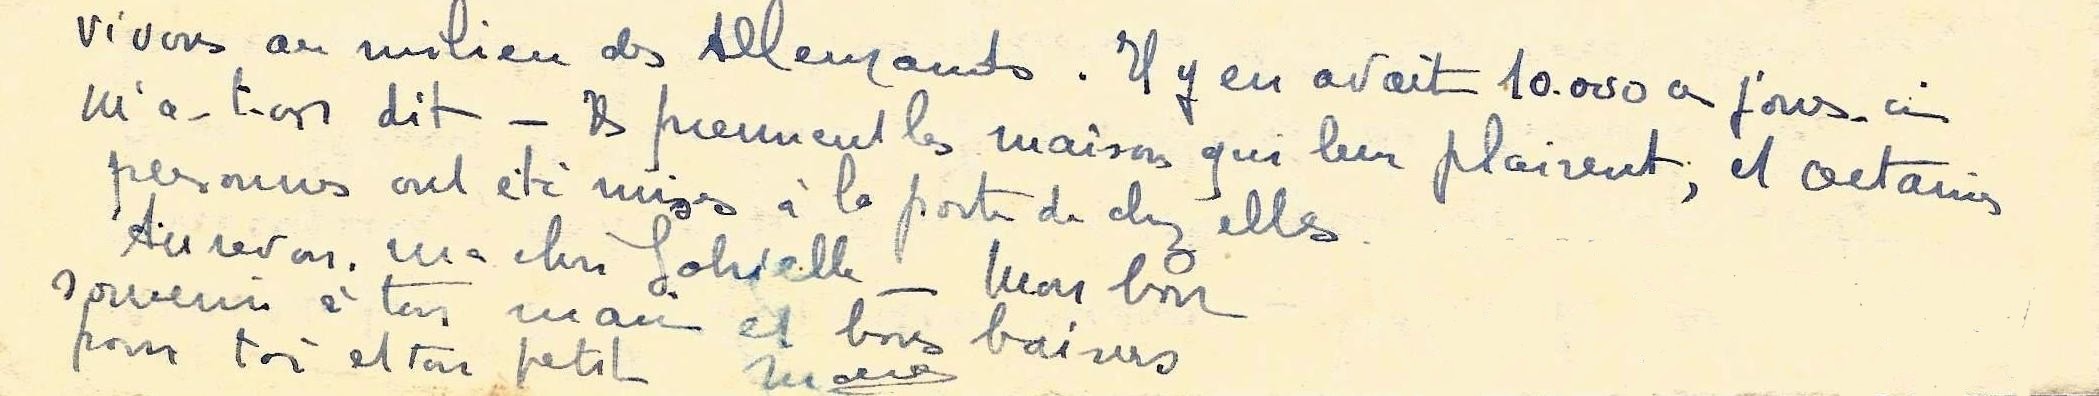 vivons au milieu des Allemands. Il y en avait 10.000 ces jours-ci
m'a-t-on dit - Ils prennent les maisons qui leur plaisent, et certaines
personnes ont été mises à la porte de chez elles.
Au revoir, ma chère Gabrielle - Mon bon
souvenir à ton mari et bons baisers
pour toi et ton petit